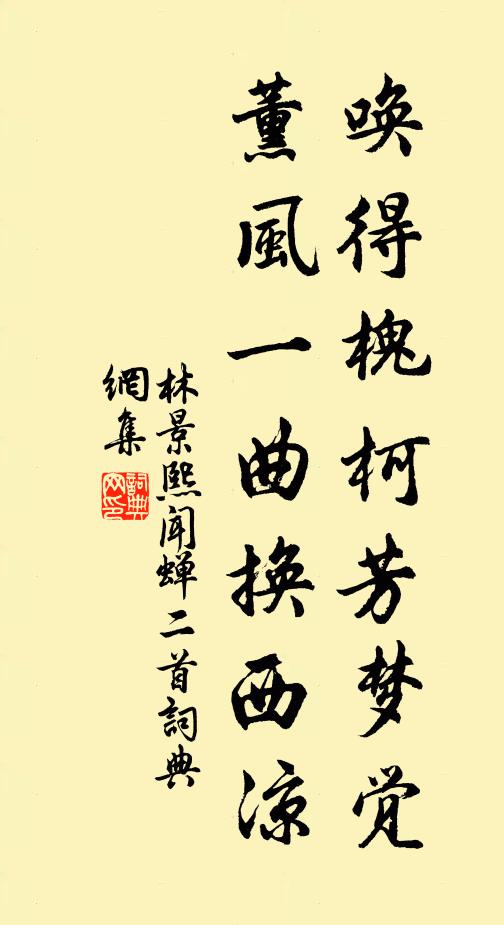 唤得槐柯芳梦觉
薰風一曲换西凉
林景熙闻蝉二首詞典
網集
詞典
网印